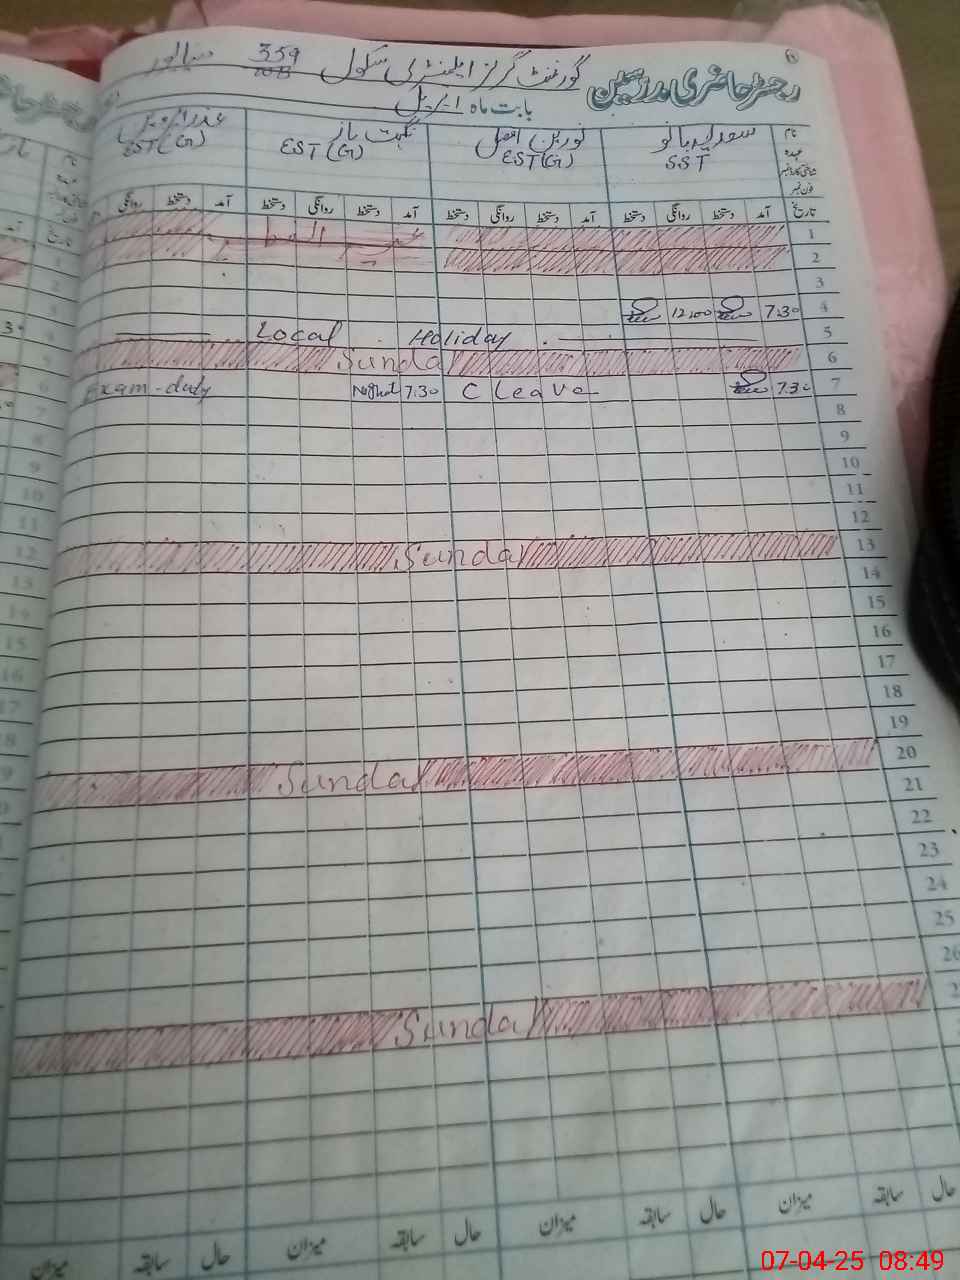 رجسٹر حاضری مدرسین
گورنمنٹ گرلز ایلیمنٹری سکول 359
بابت ماہ اپریل
نام
عہدہ
شناختی کارڈ نمبر
فون نمبر
سعدیہ بانو SST
نورین افضل EST(G)
نگہت ناز EST(G)
EST(G)
تاریخ آمد دستخط روانگی دستخط آمد دستخط روانگی دستخط آمد دستخط روانگی دستخط آمد دستخط روانگی
1 عید الفطر
2
3
4 7.30 12:00
5 Local Holiday
6 Sunday
7 7.30 C Leave 7.30 Exam-duty
8
9
10
11
12
13 Sunday
14
15
16
17
18
19
20 Sunday
21
22
23
24
25
26
2 Sunday
حال سابقہ میزان حال سابقہ میزان حال سابقہ میزان حال سابقہ میزان
07-04-25 08:49